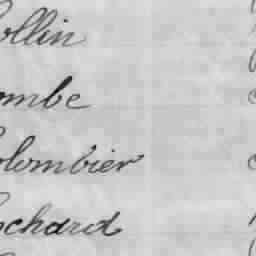 ollin
ombe
olombier
ochard